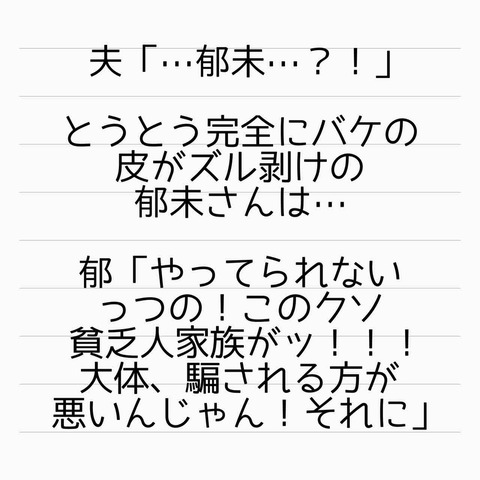 夫「…郁未…？！」
とうとう完全にバケの
皮がズル剥けの
郁未さんは…
郁「やってられない
っつの！このクソ
貧乏人家族がッ！！！
大体、騙される方が
悪いんじゃん！それに」